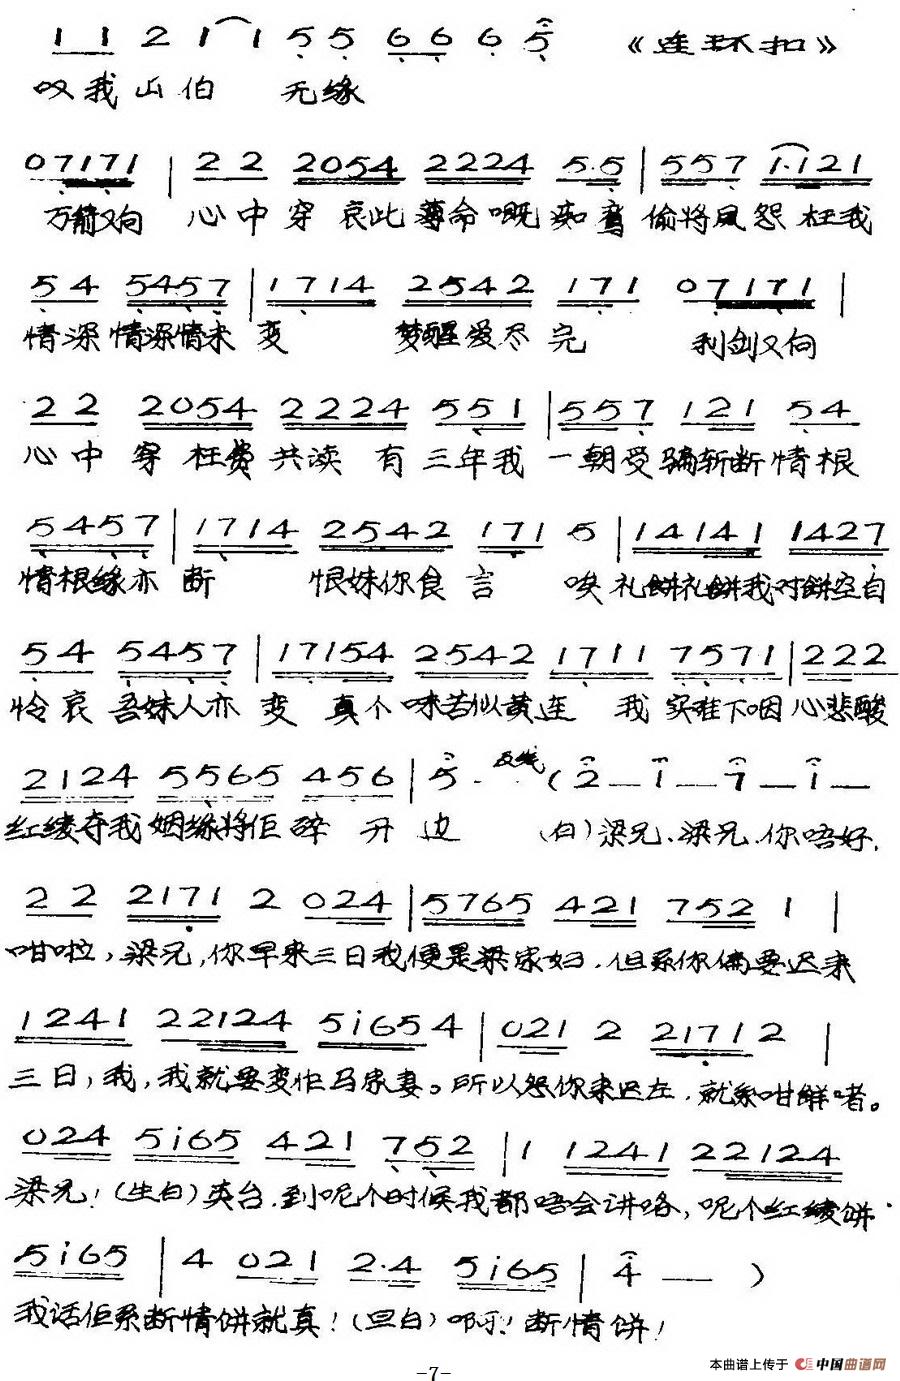 1 1 2 1 1 5 5 6 6 6 5 《连环扣》
叹我山伯 无缘
07171 | 2 2 2054 2224 5·5 | 557 1·121
万箭又向 心中穿 哀此薄命嘅痴鸾 偷将凤怨 枉我
54 5457 | 1714 2542 171 07171 |
情深情深情未变 梦醒爱尽完 利剑又向
2 2 2054 2224 551 | 557 121 54
心中穿 枉费共读 有三年我 一朝受骗斩断情根
5457 | 1714 2542 171 5 | 14141 1427
情根缘亦断 恨妹你食言 唉礼饼礼饼我对饼空自
54 5457 | 17154 2542 1711 7571 | 222
怜哀 吾妹人亦变 真个味苦似黄连 我实难下咽 心悲酸
2124 5565 456 | 5 - 反线 (2 — 1 — 7 — 1 —
红绫夺我姻缘将佢碎开边 (白)梁兄、梁兄、你唔好,
2 2 2171 2 024 | 5765 421 752 1 |
咁啦,梁兄,你早来三日我便是梁家妇.但系你偏要迟来
1241 22124 51654 | 021 2 21712 |
三日,我,我就要变作马家妻。所以怨你来迟左,就系咁解啫。
024 5i65 421 752 | 1 1241 22124
梁兄!(生白)英台.到呢个时候我都唔会讲咯,呢个红绫饼.
5i65 | 4 021 2·4 5i65 | 4 — )
我话佢系断情饼就真!(旦白)啊!断情饼!
-7-
本曲谱上传于 中国曲谱网